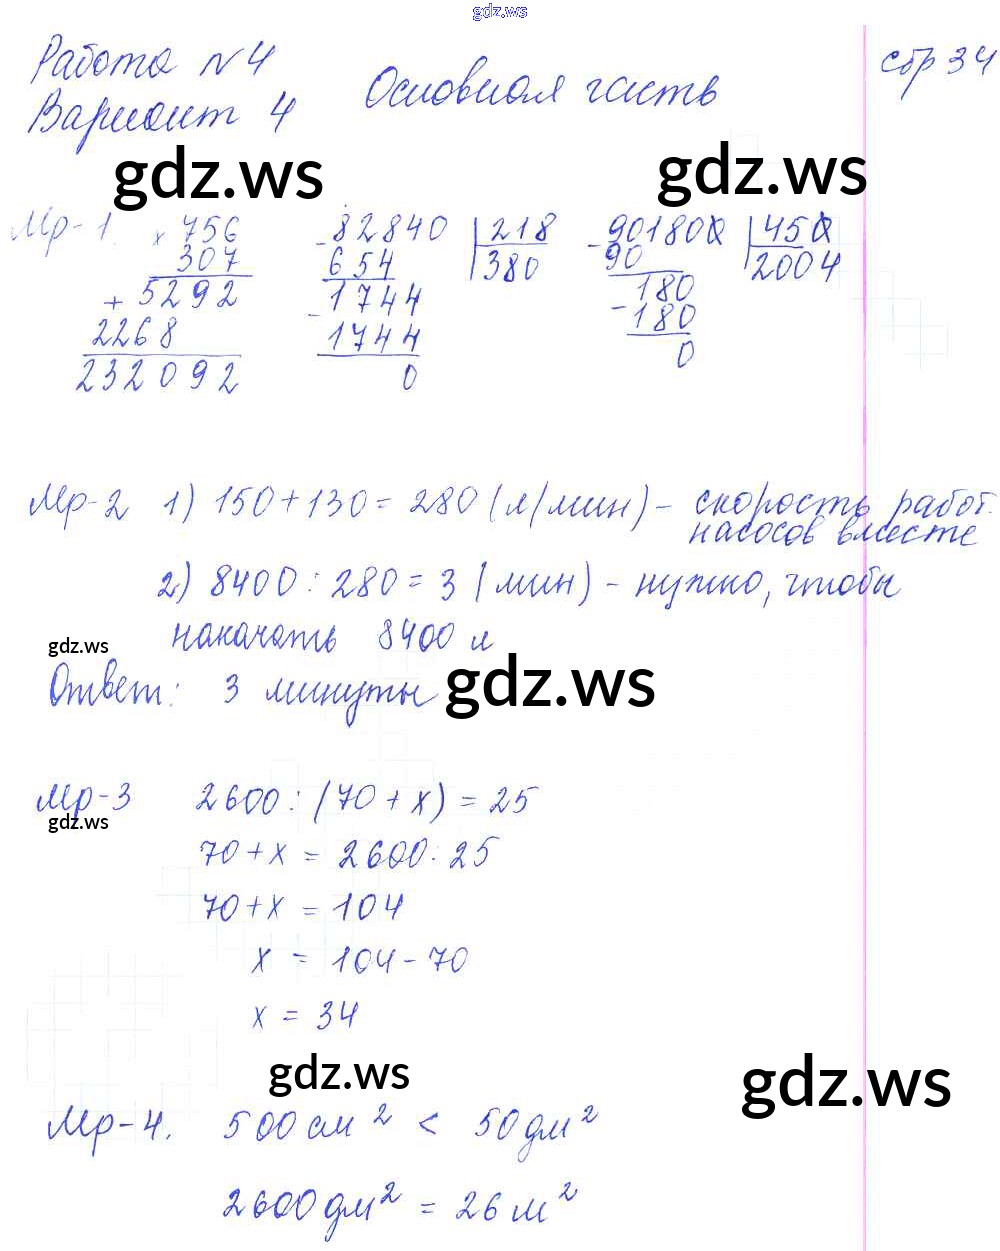 gdz.ws
Работа №4 стр 34
Вариант 4 Основная часть
gdz.ws gdz.ws
Мр-1. × 756 - 82840 | 218 - 901800 | 450
307 654 380 90 2004
+ 5292 - 1744 180
2268 1744 - 180
232092 0 0
Мр-2 1) 150+130=280 (л/мин) - скорость работ.
насосов вместе
2) 8400:280=3 (мин) - нужно, чтобы
накачать 8400 л
gdz.ws
Ответ: 3 минуты
gdz.ws
Мр-3 2600:(70+x)=25
gdz.ws
70+x=2600:25
70+x=104
x = 104-70
x = 34
gdz.ws
gdz.ws
Мр-4. 500 см² < 50 дм²
2600 дм² = 26 м²